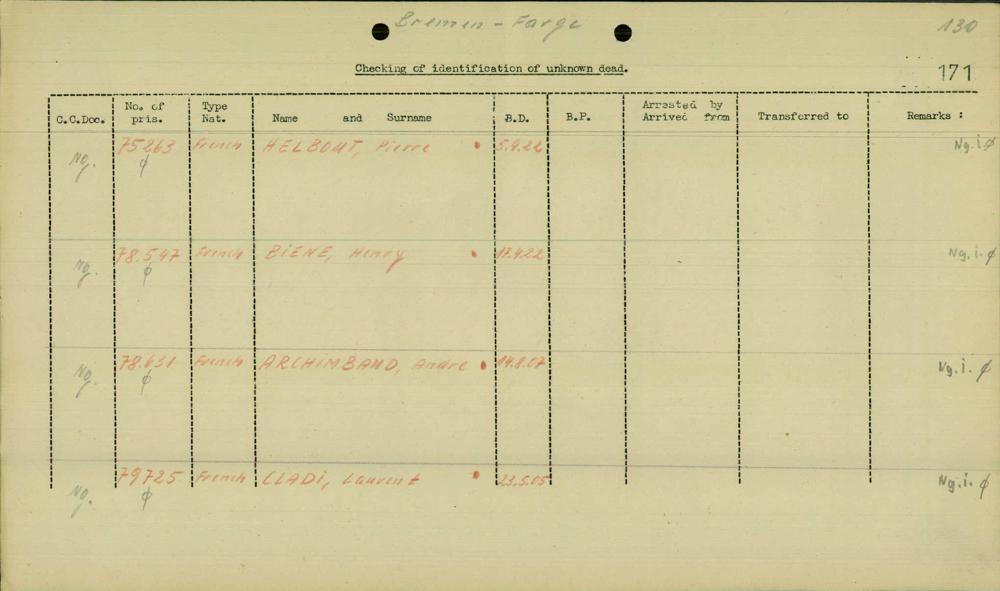 Bremen - Farge
130
Checking of identification of unknown dead.
171
C.C.Doc. No. of pris. Type Nat. Name and Surname B.D. B.P. Arrested by Arrived from Transferred to Remarks :
Ng. 75263 ϕ French HELBOUT, Pierre • 5.9.22 Ng.i.ϕ
Ng. 78.547 ϕ French BiENE, Henry • 17.4.22 Ng.i.ϕ
Ng. 78.631 ϕ French ARCHIMBAUD, Andre • 14.8.07 Ng.i.ϕ
Ng. 79725 ϕ French CLADi, Laurent • 23.5.05 Ng.i.ϕ